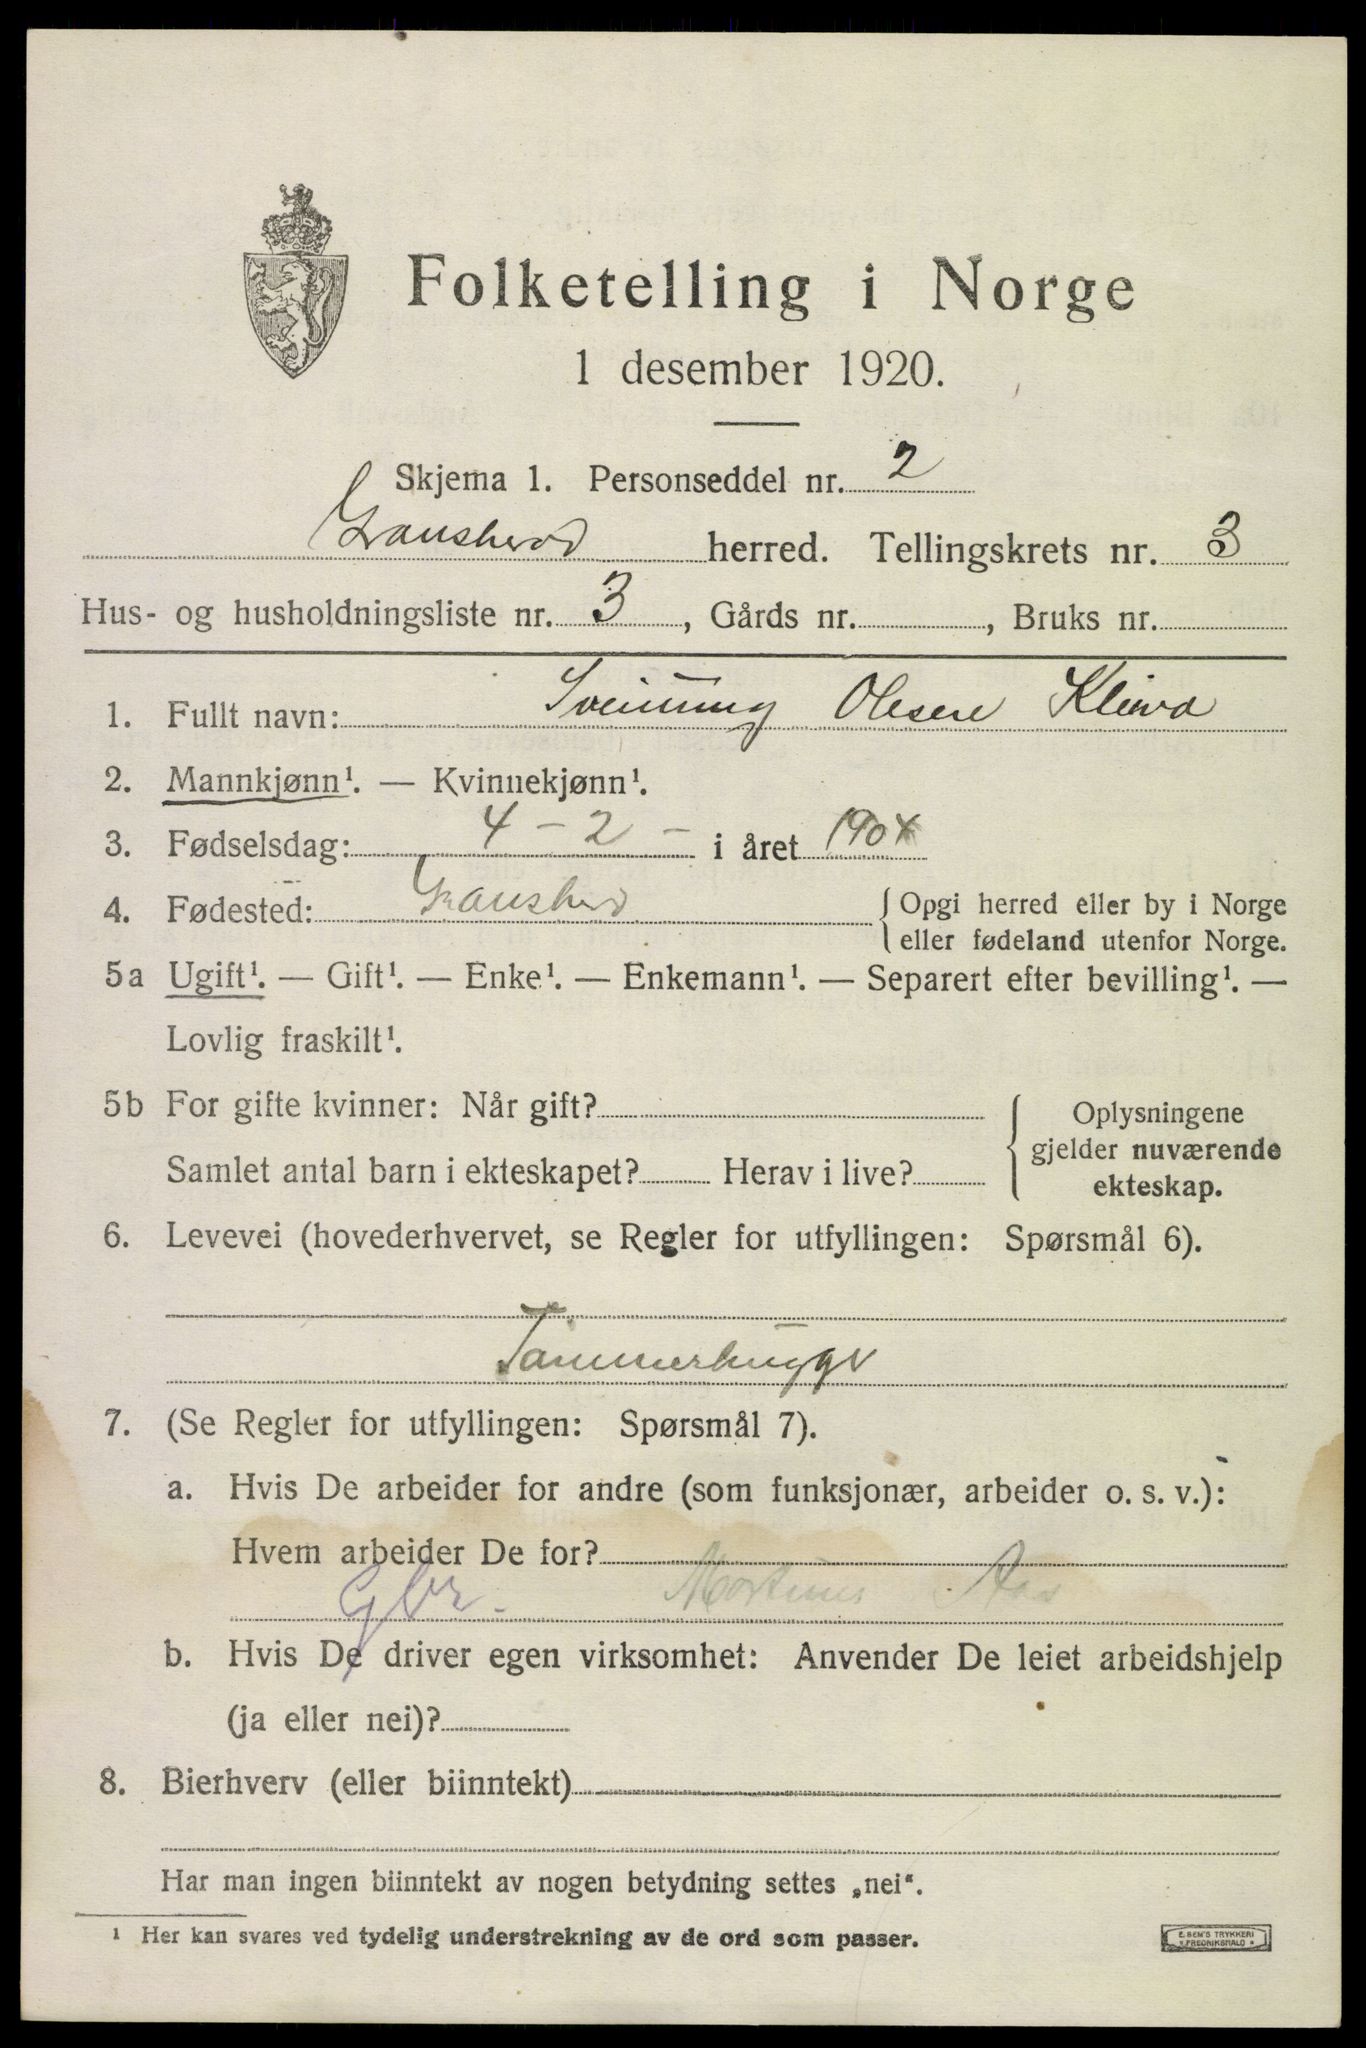 Folketelling i Norge
1 desember 1920.
Skjema 1. Personseddel nr. 2
Gransherad herred. Tellingskrets nr. 3
Hus- og husholdningsliste nr. 3, Gårds nr. , Bruks nr.
1. Fullt navn: Sveinung Olsen Kleiva
2. Mannkjønn¹. — Kvinnekjønn¹.
3. Fødselsdag: 4 - 2 - i året 1904
4. Fødested: Gransherad
{ Opgi herred eller by i Norge
eller fødeland utenfor Norge.
5a Ugift¹. — Gift¹. — Enke¹. — Enkemann¹. — Separert efter bevilling¹. —
Lovlig fraskilt¹.
5b For gifte kvinner: Når gift?
Samlet antal barn i ekteskapet? Herav i live?
{ Oplysningene
gjelder nuværende
ekteskap.
6. Levevei (hovederhvervet, se Regler for utfyllingen: Spørsmål 6).
Tømmerhugger
7. (Se Regler for utfyllingen: Spørsmål 7).
a. Hvis De arbeider for andre (som funksjonær, arbeider o. s. v.):
Hvem arbeider De for?
Martinus Aas
b. Hvis De driver egen virksomhet: Anvender De leiet arbeidshjelp
(ja eller nei)?
8. Bierhverv (eller biinntekt)
Har man ingen biinntekt av nogen betydning settes „nei“.
¹ Her kan svares ved tydelig understrekning av de ord som passer.
E. SEM'S TRYKKERI
FREDRIKSHALD